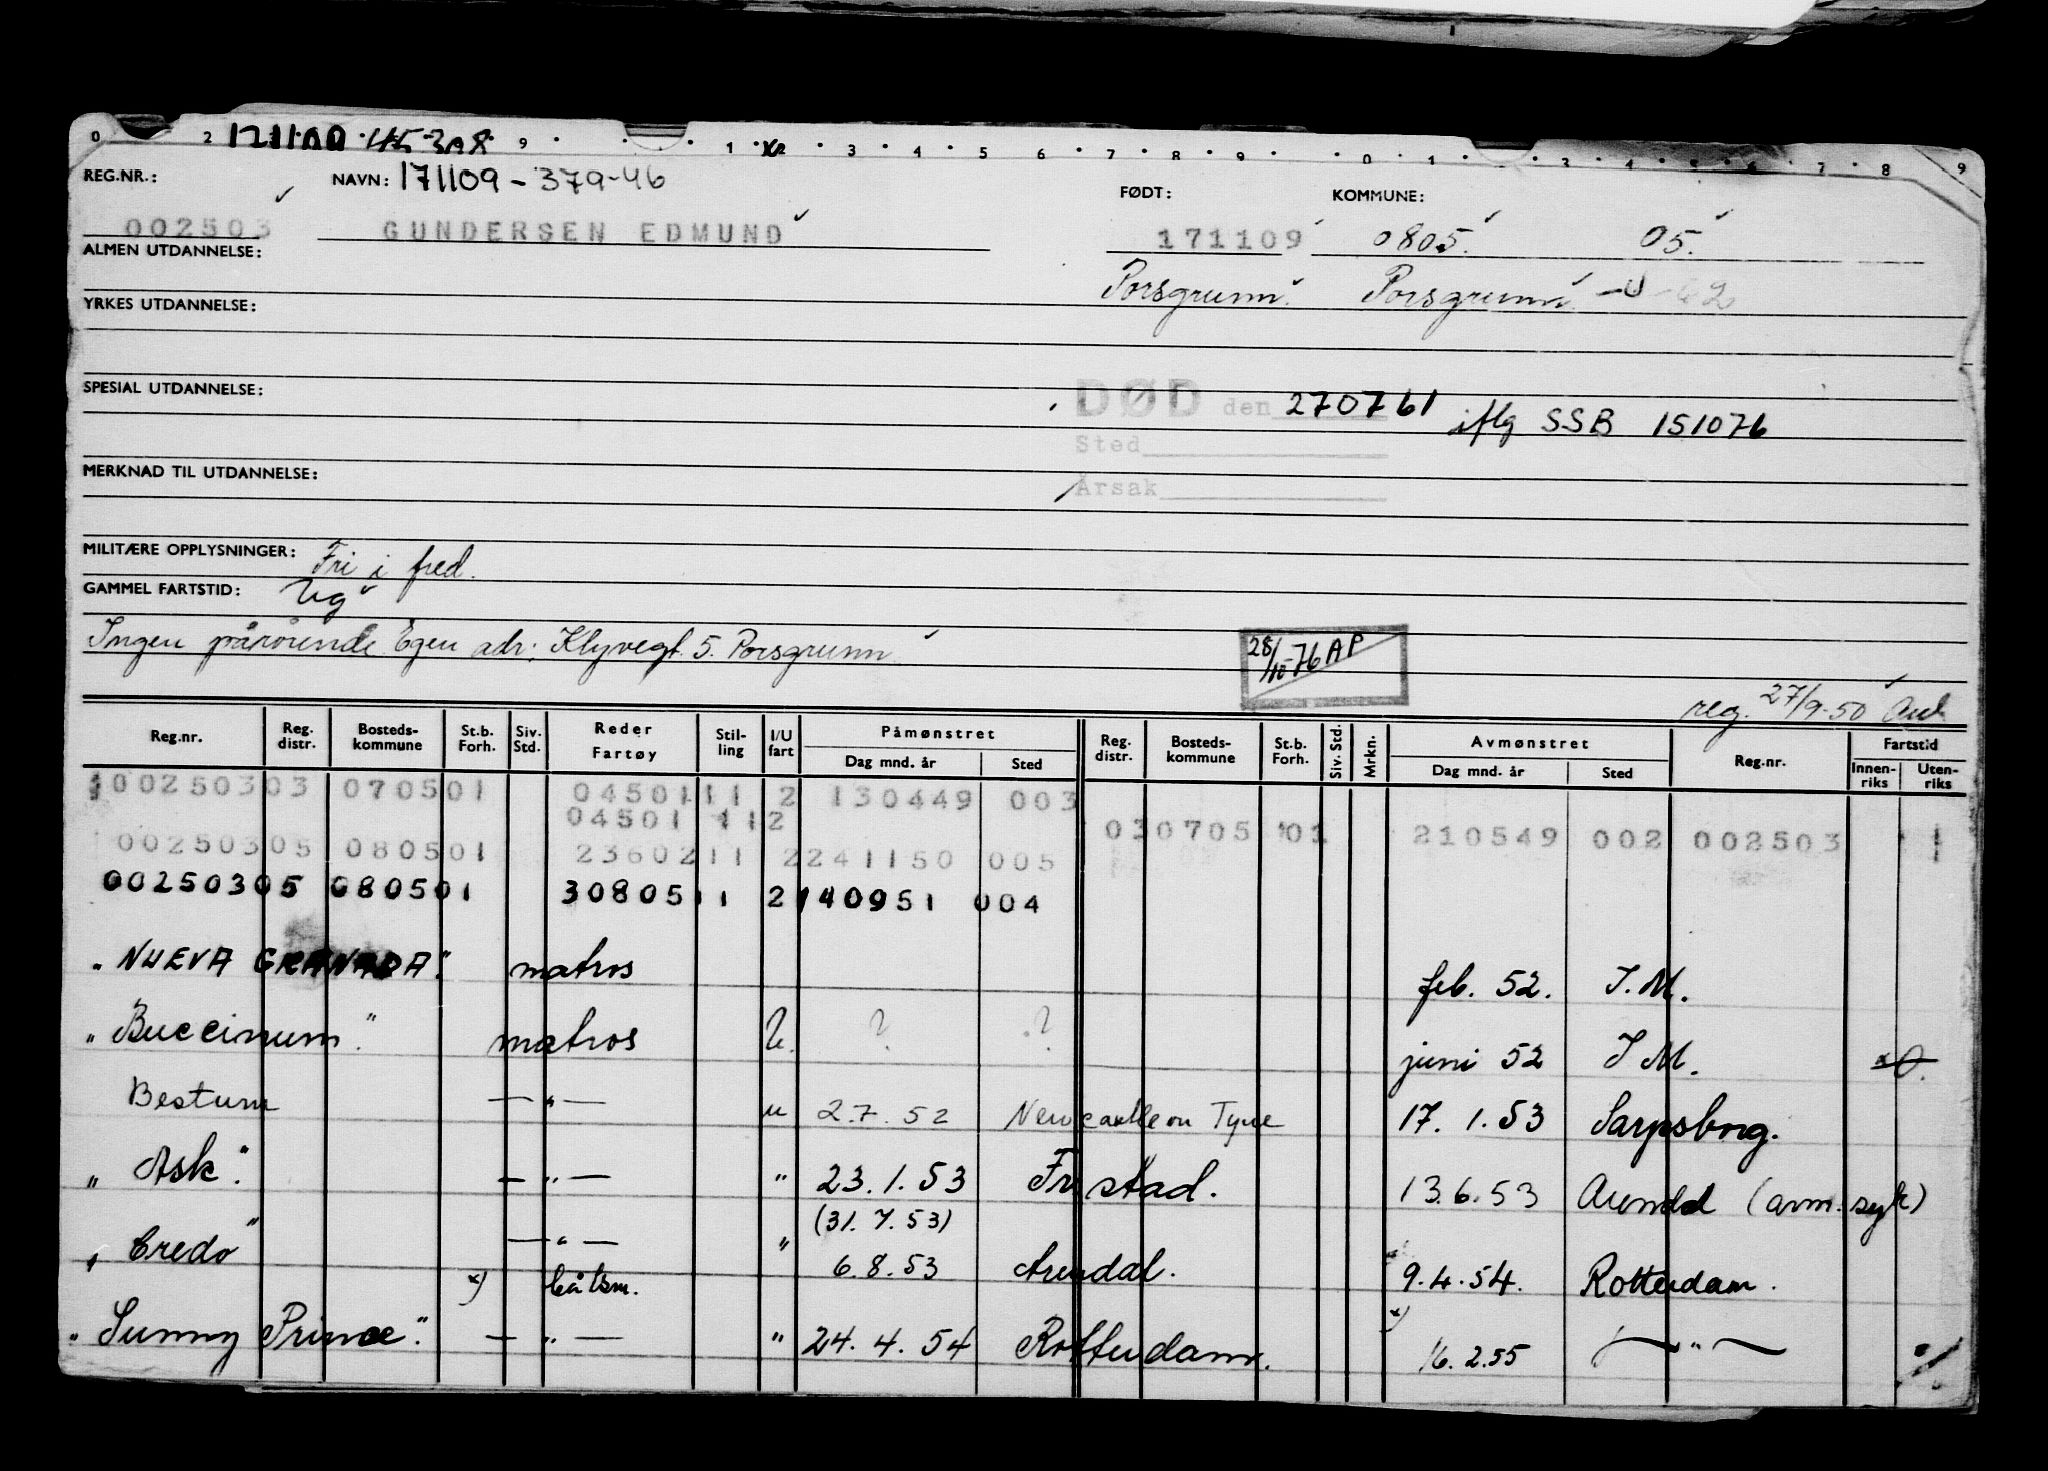 171109 45 308
0 2 9 1 2 3 4 5 6 7 8 9 0 1 3 4 5 6 7 8 9
REG.NR.: NAVN: 171109-379-46 FØDT: KOMMUNE:
002503 GUNDERSEN EDMUND 171109 0805. 05.
ALMEN UTDANNELSE: Porsgrunn. Porsgrunn
YRKES UTDANNELSE:
SPESIAL UTDANNELSE: DØD den 270761 iflg SSB 151076
Sted
MERKNAD TIL UTDANNELSE: Årsak
MILITÆRE OPPLYSNINGER: Fri i fred.
GAMMEL FARTSTID: Ug
Ingen pårørende. Egen adr: Klyvegt. 5. Porsgrunn
28/10-76 AP
reg. 27/9-50
Reg.nr. Reg. distr. Bosteds-kommune St.b. Forh. Siv. Std. Reder Fartøy Stil-ling I/U fart Påmønstret Dag mnd. år Sted Reg. distr. Bosteds-kommune St.b. Forh. Siv. Std. Mrkn. Avmønstret Dag mnd. år Sted Reg.nr. Fartstid Innen-riks Uten-riks
00250303 070501 0450111 2 130449 003
04501 112 030705 01 210549 002 002503 1
00250305 080501 2360211 2241150 005
00250305 080501 3080511 2140951 004
"NUEVA GRANADA". matros feb. 52. I.M.
"Buccinum". matros U. ? ? juni 52 I M.
Bestum — " — u 2.7.52 Newcastle on Tyne 17.1.53 Sarpsborg.
"Ask". — " — " 23.1.53 Fr.stad. 13.6.53 Arendal (avm. syk)
(31.7.53)
"Credo" — " — " 6.8.53 Arendal. 9.4.54. Rotterdam.
x) båtsm.
"Sunny Prince". — " — " 24.4.54 Rotterdam. x) 16.2.55 — " —